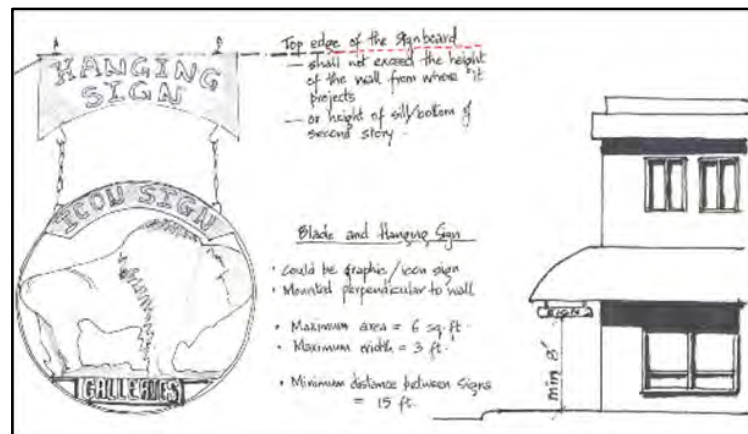 HANGING
SIGN
ICON SIGN
GALLERIES
Top edge of the signboard
— shall not exceed the height
of the wall from where it
projects
— or height of sill/bottom of
second story.
Blade and Hanging Sign
• Could be graphic/icon sign
• Mounted perpendicular to wall
• Maximum area = 6 sq. ft.
• Maximum width = 3 ft.
• Minimum distance between signs
= 15 ft.
SIGN
min 8'